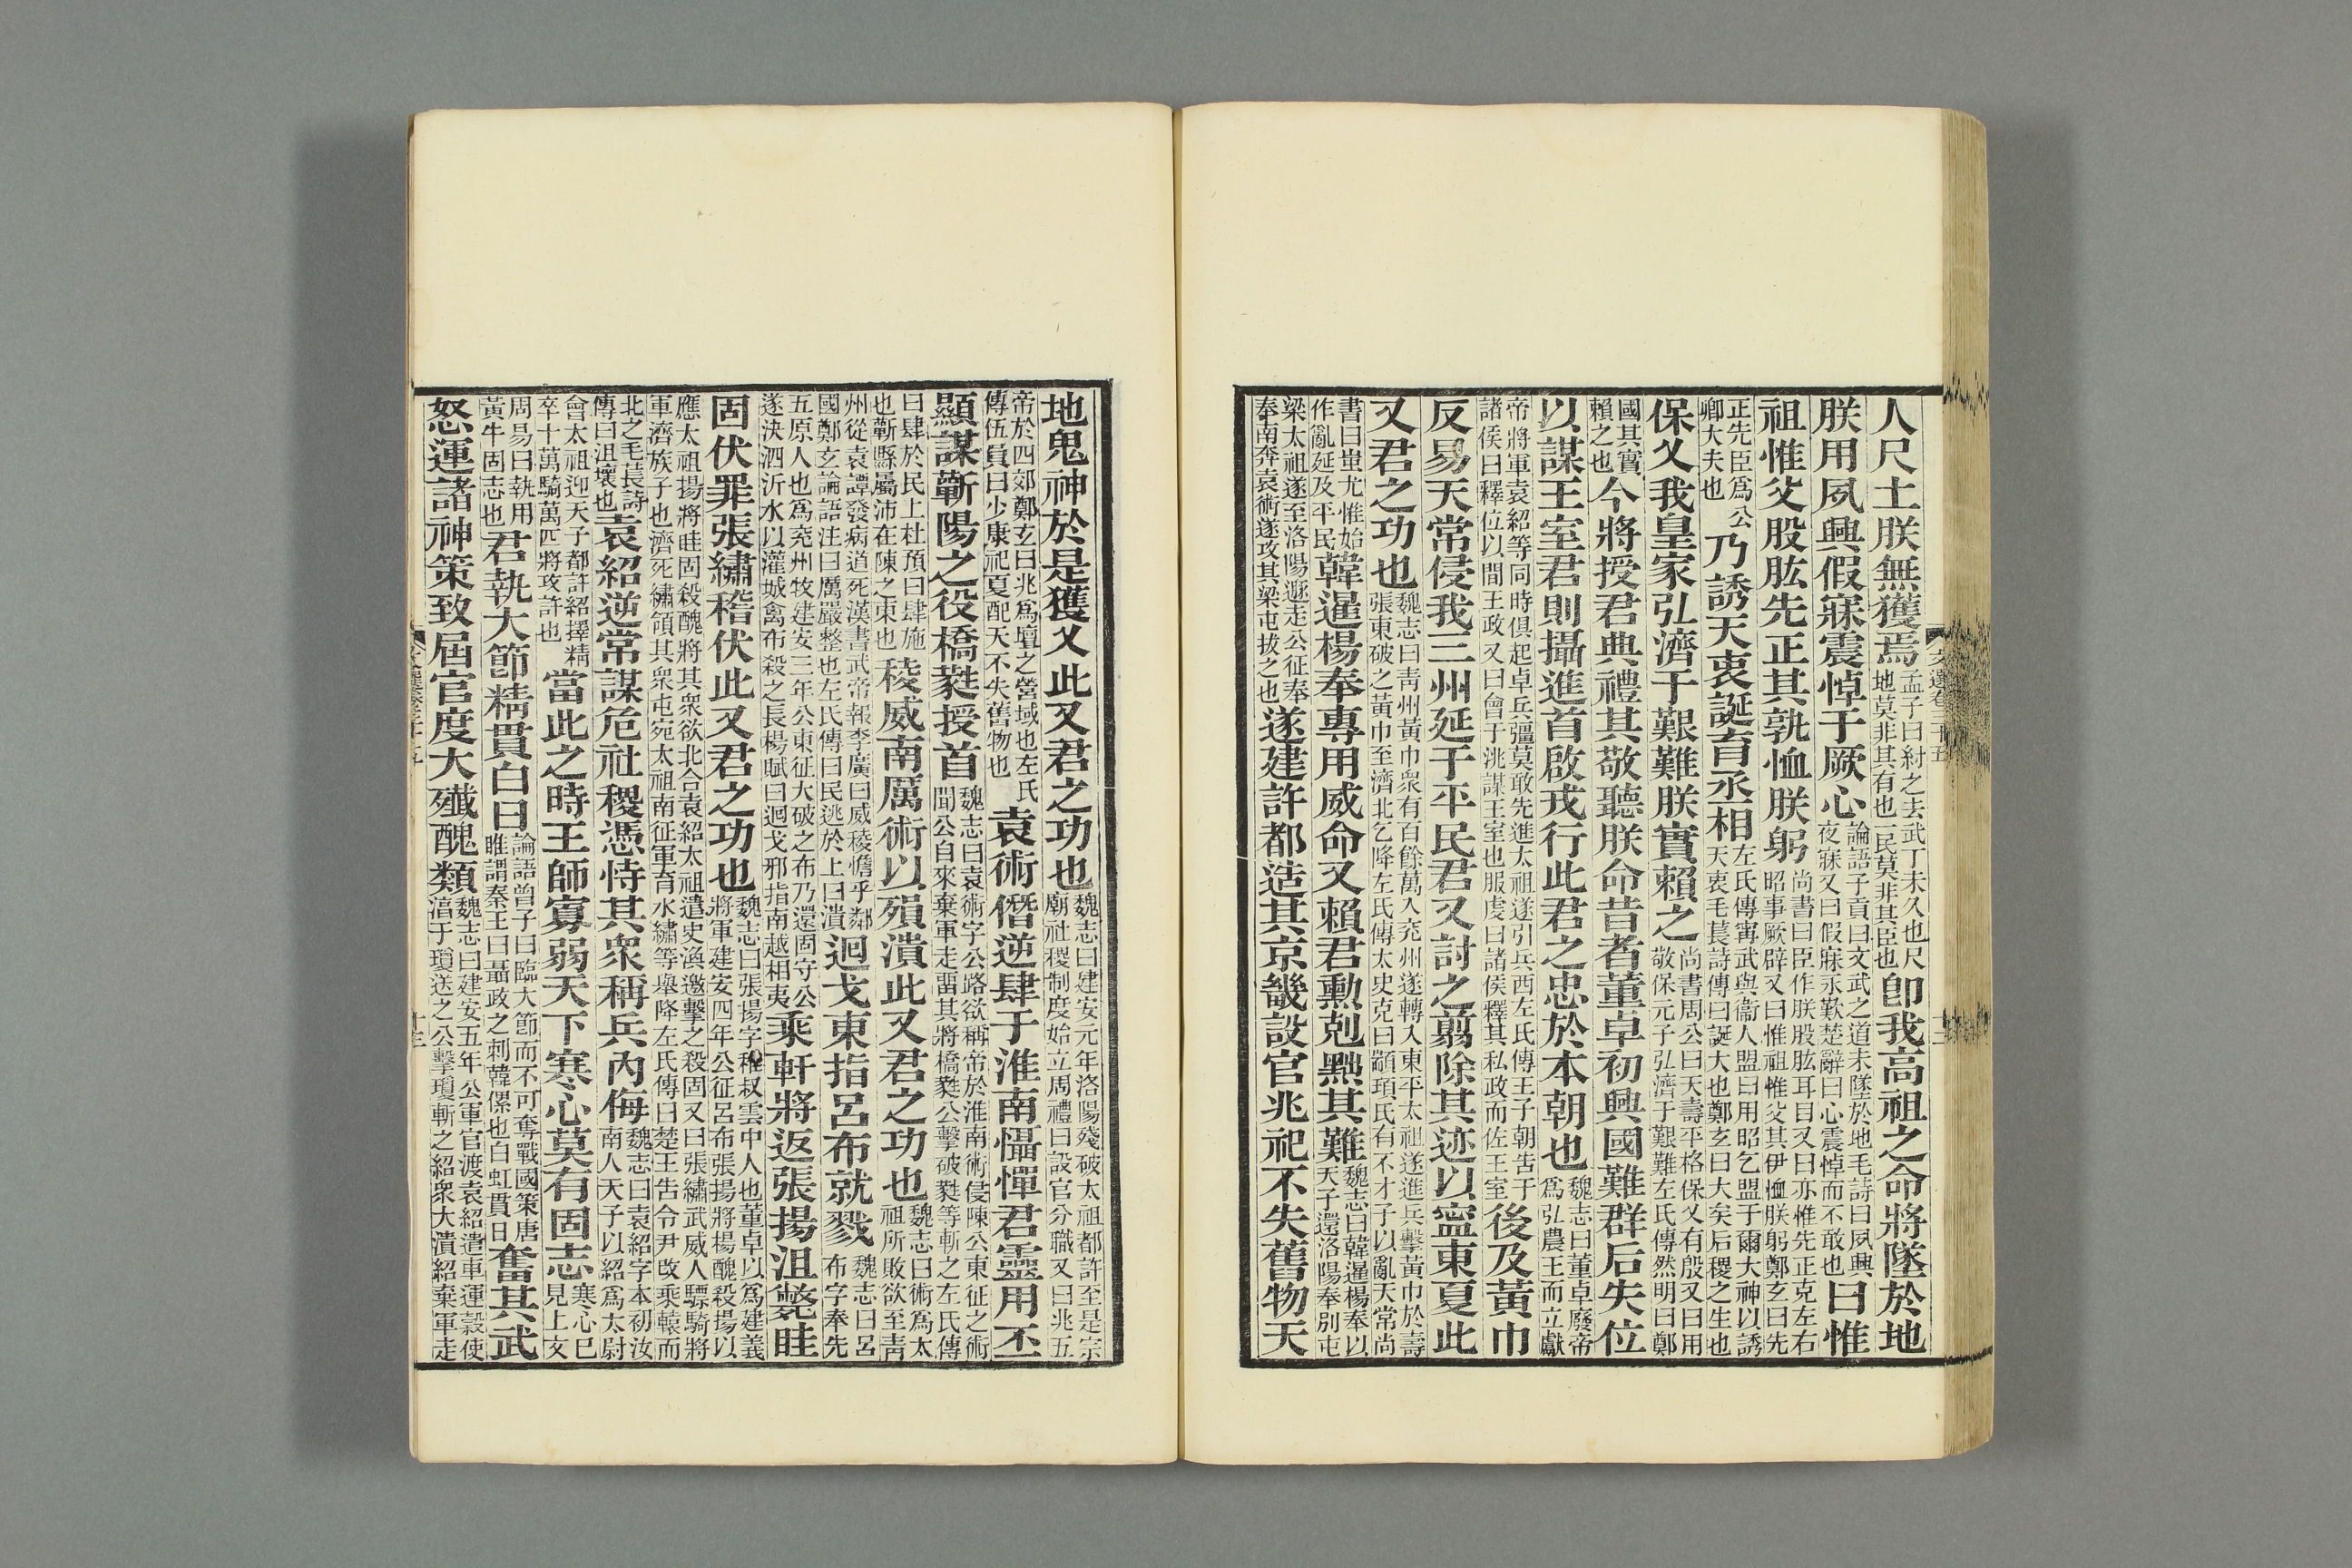 人尺土朕無獲焉孟子曰紂之去武丁未久也尺地莫非其有也一民莫非其臣也卽我高祖之命將墜於地
朕用夙興假寐震悼于厥心論語子貢曰文武之道未墜於地毛詩曰夙興夜寐又曰假寐永歎楚辭曰心震悼而不敢也曰惟
祖惟父股肱先正其孰恤朕躬尚書曰臣作朕股肱耳目又曰亦惟先正克左右昭事厥辟又曰惟祖惟父其伊恤朕躬鄭玄曰先
正先臣爲公卿大夫也乃誘天衷誕育丞相左氏傳甯武與衞人盟曰用昭乞盟于爾大神以誘天衷毛萇詩傳曰誕大也鄭玄曰大矣后稷之生也
保乂我皇家弘濟于艱難朕實賴之尚書周公曰天壽平格保乂有殷又曰用敬保元子弘濟于艱難左氏傳然明曰鄭
國其實賴之也今將授君典禮其敬聽朕命昔者董卓初興國難群后失位
以謀王室君則攝進首啟戎行此君之忠於本朝也魏志曰董卓廢帝爲弘農王而立獻
帝將軍袁紹等同時俱起卓兵彊莫敢先進太祖遂引兵西左氏傳王子朝告于諸侯曰釋位以間王政又曰會于洮謀王室也服虔曰諸侯釋其私政而佐王室後及黃巾
反易天常侵我三州延于平民君又討之翦除其迹以寧東夏此
又君之功也魏志曰青州黃巾衆有百餘萬入兖州遂轉入東平太祖遂進兵擊黃巾於壽張東破之黃巾至濟北乞降左氏傳太史克曰顓頊氏有不才子以亂天常尚
書曰蚩尤惟始作亂延及平民韓暹楊奉專用威命又賴君勳剋黜其難魏志曰韓暹楊奉以天子還洛陽奉別屯
梁太祖遂至洛陽遯走公征奉奉南奔袁術遂攻其梁屯拔之也遂建許都造其京畿設官兆祀不失舊物天
地鬼神於是獲乂此又君之功也魏志曰建安元年洛陽殘破太祖都許至是宗廟社稷制度始立周禮曰設官分職又曰兆五
帝於四郊鄭玄曰兆爲壇之營域也左氏傳伍員曰少康祀夏配天不失舊物也袁術僭逆肆于淮南懾憚君靈用丕
顯謀蘄陽之役橋蕤授首魏志曰袁術字公路欲稱帝於淮南術侵陳公東征之術聞公自來棄軍走畱其將橋蕤公擊破蕤等斬之左氏傳
曰肆於民上杜預曰肆施也蘄縣屬沛在陳之東也稜威南厲術以殞潰此又君之功也魏志曰術爲太祖所敗欲至青
州從袁譚發病道死漢書武帝報李廣曰威稜憺乎鄰國鄭玄論語注曰厲嚴整也左氏傳曰民逃於上曰潰迴戈東指呂布就戮魏志曰呂布字奉先
五原人也爲兖州牧建安三年公東征大破之布乃還固守公遂決泗沂水以灌城禽布殺之長楊賦曰迴戈邪指南越相夷乘軒將返張揚沮斃眭
固伏罪張繡稽伏此又君之功也魏志曰張揚字稚叔雲中人也董卓以爲建義將軍建安四年公征呂布張揚將楊醜殺揚以
應太祖揚將眭固殺醜將其衆欲北合袁紹太祖遣史渙邀擊之殺固又曰張繡武威人驃騎將軍濟族子也濟死繡領其衆屯宛太祖南征軍育水繡等舉降左氏傳曰楚王告令尹改乘轅而
北之毛萇詩傳曰沮壞也袁紹逆常謀危社稷憑恃其衆稱兵內侮魏志曰袁紹字本初汝南人天子以紹爲太尉
會太祖迎天子都許紹擇精卒十萬騎萬匹將攻許也當此之時王師寡弱天下寒心莫有固志寒心已見上文
周易曰執用黃牛固志也君執大節精貫白日論語曾子曰臨大節而不可奪戰國策唐雎謂秦王曰聶政之刺韓傀也白虹貫日奮其武
怒運諸神策致屆官度大殲醜類魏志曰建安五年公軍官渡袁紹遣車運糓使淳于瓊送之公擊瓊斬之紹衆大潰紹棄軍走